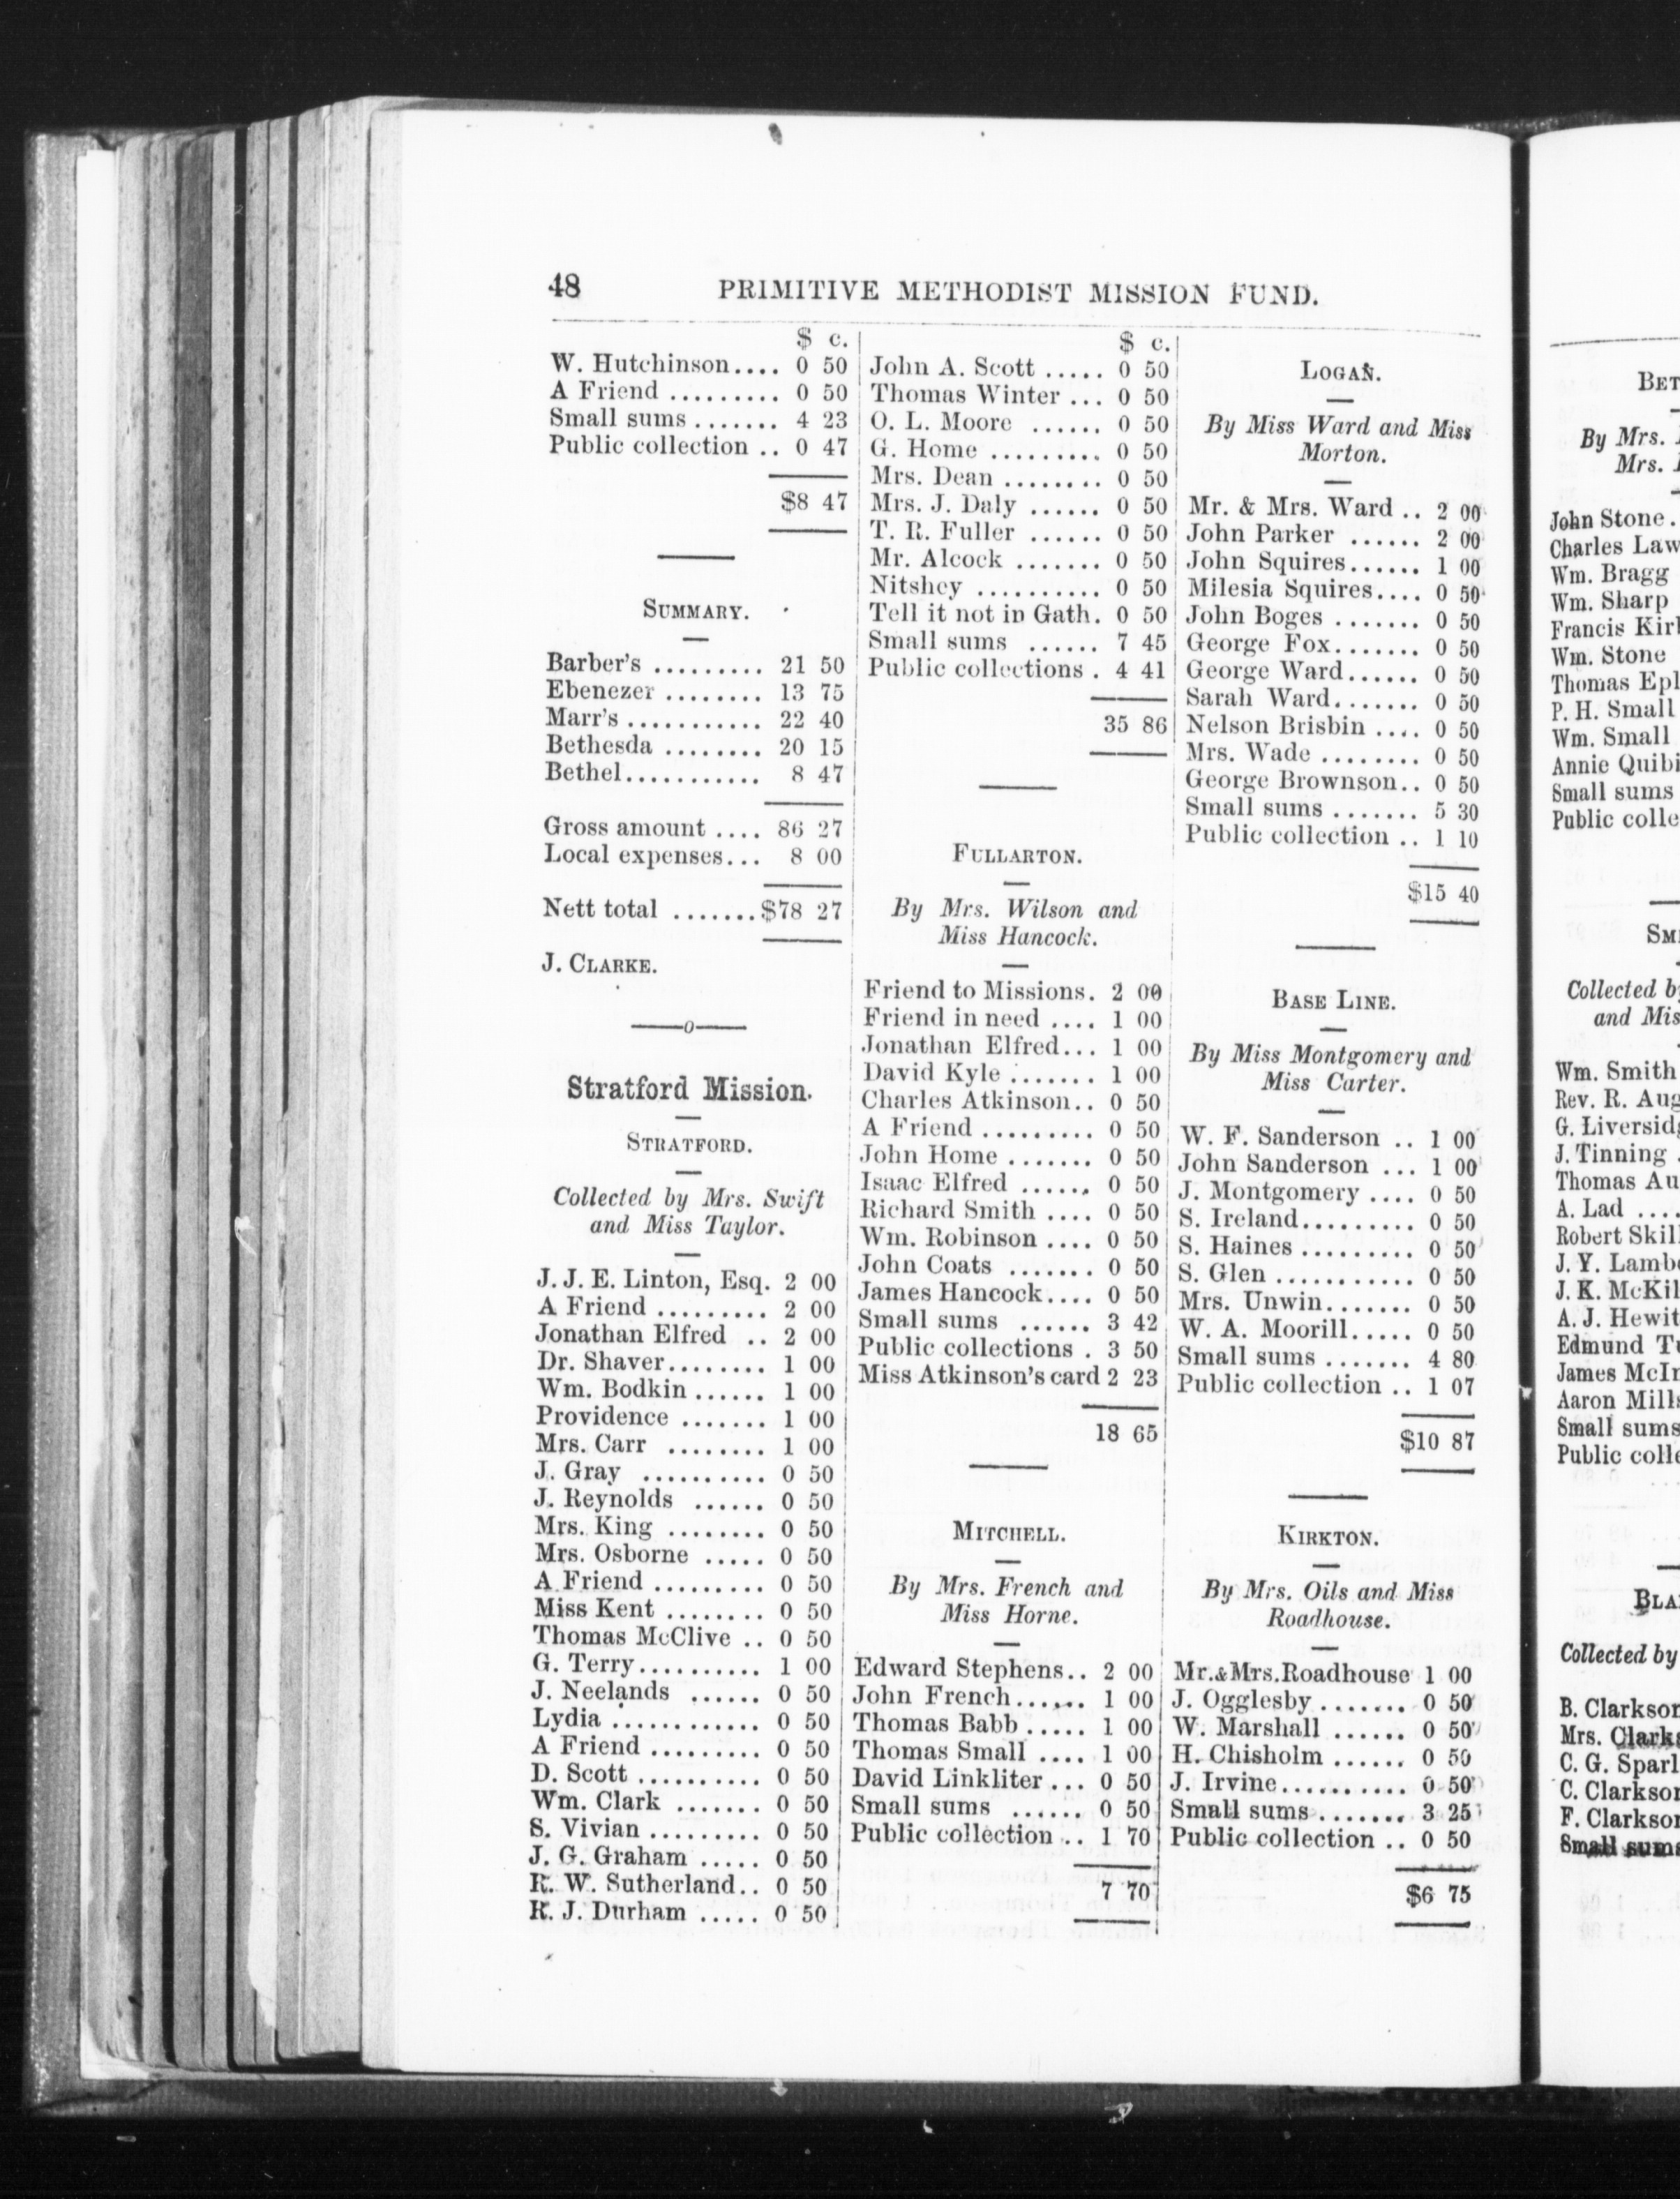 48
PRIMITIVE METHODIST MISSION FUND.
$ c.
W. Hutchinson.... 0 50
A Friend ......... 0 50
Small sums ....... 4 23
Public collection .. 0 47
$8 47
SUMMARY.
Barber's ......... 21 50
Ebenezer ........ 13 75
Marr's ........... 22 40
Bethesda ........ 20 15
Bethel........... 8 47
Gross amount .... 86 27
Local expenses... 8 00
Nett total .......$78 27
J. CLARKE.
Stratford Mission.
STRATFORD.
Collected by Mrs. Swift
and Miss Taylor.
J. J. E. Linton, Esq. 2 00
A Friend ......... 2 00
Jonathan Elfred .. 2 00
Dr. Shaver........ 1 00
Wm. Bodkin ...... 1 00
Providence ....... 1 00
Mrs. Carr ........ 1 00
J. Gray .......... 0 50
J. Reynolds ...... 0 50
Mrs. King ........ 0 50
Mrs. Osborne ..... 0 50
A Friend ......... 0 50
Miss Kent ........ 0 50
Thomas McClive .. 0 50
G. Terry.......... 1 00
J. Neelands ...... 0 50
Lydia ............ 0 50
A Friend ......... 0 50
D. Scott .......... 0 50
Wm. Clark ....... 0 50
S. Vivian ......... 0 50
J. G. Graham ..... 0 50
R. W. Sutherland.. 0 50
R. J. Durham ..... 0 50
$ c.
John A. Scott ..... 0 50
Thomas Winter ... 0 50
O. L. Moore ...... 0 50
G. Home ......... 0 50
Mrs. Dean ........ 0 50
Mrs. J. Daly ...... 0 50
T. R. Fuller ...... 0 50
Mr. Alcock ....... 0 50
Nitshey .......... 0 50
Tell it not in Gath. 0 50
Small sums ...... 7 45
Public collections . 4 41
35 86
FULLARTON.
By Mrs. Wilson and
Miss Hancock.
Friend to Missions. 2 00
Friend in need .... 1 00
Jonathan Elfred... 1 00
David Kyle ....... 1 00
Charles Atkinson.. 0 50
A Friend ......... 0 50
John Home ....... 0 50
Isaac Elfred ...... 0 50
Richard Smith .... 0 50
Wm. Robinson .... 0 50
John Coats ....... 0 50
James Hancock.... 0 50
Small sums ...... 3 42
Public collections . 3 50
Miss Atkinson's card 2 23
18 65
MITCHELL.
By Mrs. French and
Miss Horne.
Edward Stephens.. 2 00
John French...... 1 00
Thomas Babb ..... 1 00
Thomas Small .... 1 00
David Linkliter ... 0 50
Small sums ...... 0 50
Public collection .. 1 70
7 70
LOGAN.
By Miss Ward and Miss
Morton.
Mr. & Mrs. Ward .. 2 00
John Parker ...... 2 00
John Squires...... 1 00
Milesia Squires.... 0 50
John Boges ....... 0 50
George Fox....... 0 50
George Ward...... 0 50
Sarah Ward....... 0 50
Nelson Brisbin .... 0 50
Mrs. Wade ........ 0 50
George Brownson.. 0 50
Small sums ....... 5 30
Public collection .. 1 10
$15 40
BASE LINE.
By Miss Montgomery and
Miss Carter.
W. F. Sanderson .. 1 00
John Sanderson ... 1 00
J. Montgomery .... 0 50
S. Ireland......... 0 50
S. Haines ......... 0 50
S. Glen ........... 0 50
Mrs. Unwin....... 0 50
W. A. Moorill..... 0 50
Small sums ....... 4 80
Public collection .. 1 07
$10 87
KIRKTON.
By Mrs. Oils and Miss
Roadhouse.
Mr.&Mrs.Roadhouse 1 00
J. Ogglesby....... 0 50
W. Marshall ...... 0 50
H. Chisholm ...... 0 50
J. Irvine........... 0 50
Small sums ....... 3 25
Public collection .. 0 50
$6 75
BET
By Mrs.
Mrs.
John Stone.
Charles Law
Wm. Bragg
Wm. Sharp
Francis Kir
Wm. Stone
Thomas Epl
P. H. Small
Wm. Small
Annie Quibi
Small sums
Public colle
SM
Collected b
and Mis
Wm. Smith
Rev. R. Aug
G. Liversid
J. Tinning .
Thomas Au
A. Lad ....
Robert Skil
J. Y. Lamb
J. K. McKil
A. J. Hewit
Edmund T
James McI
Aaron Mills
Small sums
Public colle
BLA
Collected by
B. Clarkson
Mrs. Clarks
C. G. Sparl
C. Clarkson
F. Clarkson
Small sums